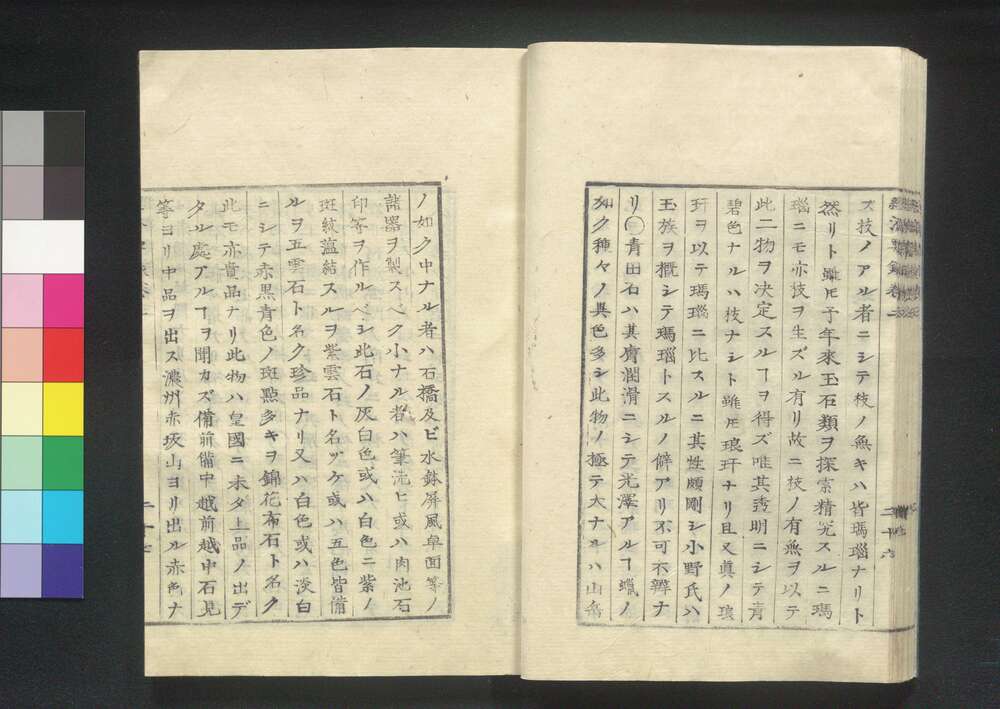 ズ枝ノアル者ニシテ枝ノ無キハ皆瑪瑙ナリト
然リト雖ㇳモ予年來玉石類ヲ探索精究スルニ瑪
瑙ニモ亦枝ヲ生ズル有リ故ニ枝ノ有無ヲ以テ
此二物ヲ決定スルヿヲ得ズ唯其透明ニシテ青
碧色ナルハ枝ナシト雖ㇳモ琅玕ナリ且又真ノ琅
玕ヲ以テ瑪瑙ニ比スルニ其性頗剛シ小野氏ハ
玉族ヲ概シテ瑪瑙トスルノ僻アリ不可不辨ナ
リ〇青田石ハ其膚潤滑ニシテ光澤アルヿ蠟ノ
如ク種々ノ異色多シ此物ノ極テ大ナルハ山岳
二十六
ノ如ク中ナル者ハ石橋及ビ水鉢屏風卓面等ノ
諸器ヲ製スベク小ナル者ハ筆洗ヒ或ハ肉池石
印等ヲ作ルベシ此石ノ灰白色或ハ白色ニ紫ノ
斑紋薀結スルヲ紫雲石ト名ヅケ或ハ五色皆備
ルヲ五雲石ト名ク珍品ナリ又ハ白色或ハ淡白
ニシテ赤黒青色ノ斑點多キヲ錦花布石ト名ク
此モ亦貴品ナリ此物ハ皇國ニ未タ上品ノ出デ
タル處アルヿヲ聞カズ備前備中越前越中石見
等ヨリ中品ヲ出ス濃州赤坂山ヨリ出ル赤色ナ
二十七